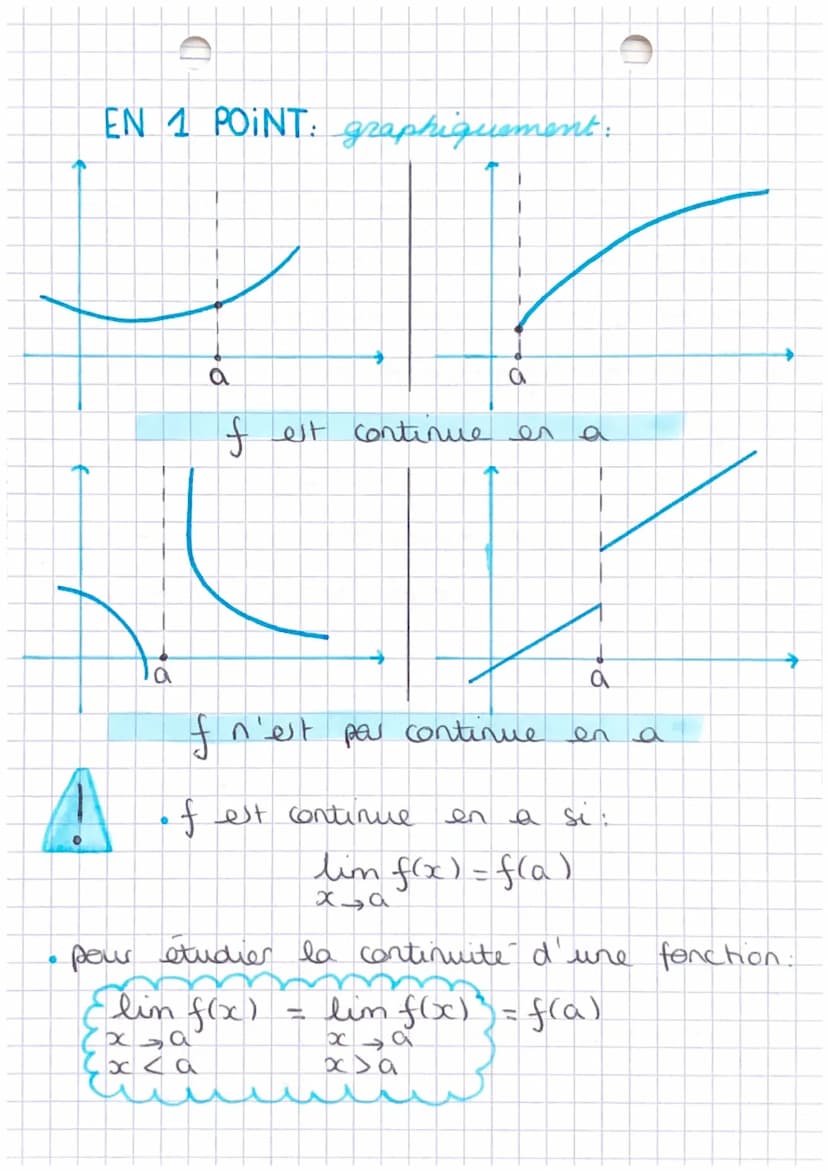 EN 1 POINT: graphiquement:
a
a
f est continue en a
a
a
f n'est pas continue en a
!
• f est continue en a si:
lim f(x) = f(a)
x→a
• pour étudier la continuité d'une fonction:
lim f(x) = lim f(x) = f(a)
x→a x→a
x<a x>a